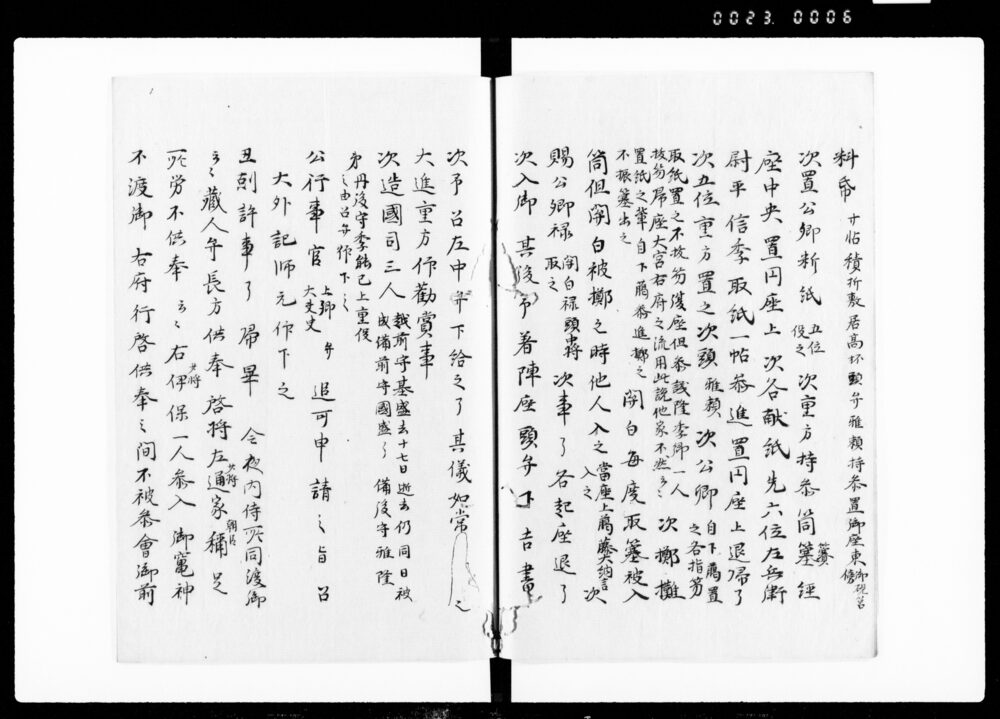 0023.0006
料帋 廿帖積折敷居高坏頭弁雅頼持参置御座東御硯筥傍
次置公卿料紙 五位役之 次重方持参筒簺 経
座中央置円座上 次各献紙先六位左兵衛
尉平信季取紙一帖参進置円座上退帰了
次五位重方置之次頭雅頼 次公卿 自下﨟置之各指笏
取紙置之不抜笏復座但参議隆季卿一人
抜笏帰座大宮右府之流用此説他家不然云々 次擲攤
置紙之輩自下﨟参進擲之 関白毎度取簺被入
不振簺出之
筒但関白被擲之時他人入之 當座上﨟藤大納言入之 次
賜公卿禄 関白禄頭中将取之 次事了各起座退了
次入御 其後予着陣座頭弁下吉書
次予召左中弁下給之了 其儀如常 之
大進重方仰勧賞事
次造國司三人 越前守基盛去十七日逝去仍同日被成備前守國盛了 備後守雅隆
弟丹後守季能已上重任
之由召弁仰下之
公行事官 上卿 弁 大夫史 追可申請之旨召
大外記師元仰下之
丑剋許事了帰畢 今夜内侍所同渡御
云々蔵人弁長方供奉 啓将左少将通家朝臣 稱足
所労不供奉云々 右少将伊保一人参入 御竃神
不渡御 右府行啓供奉之間不被参會御前